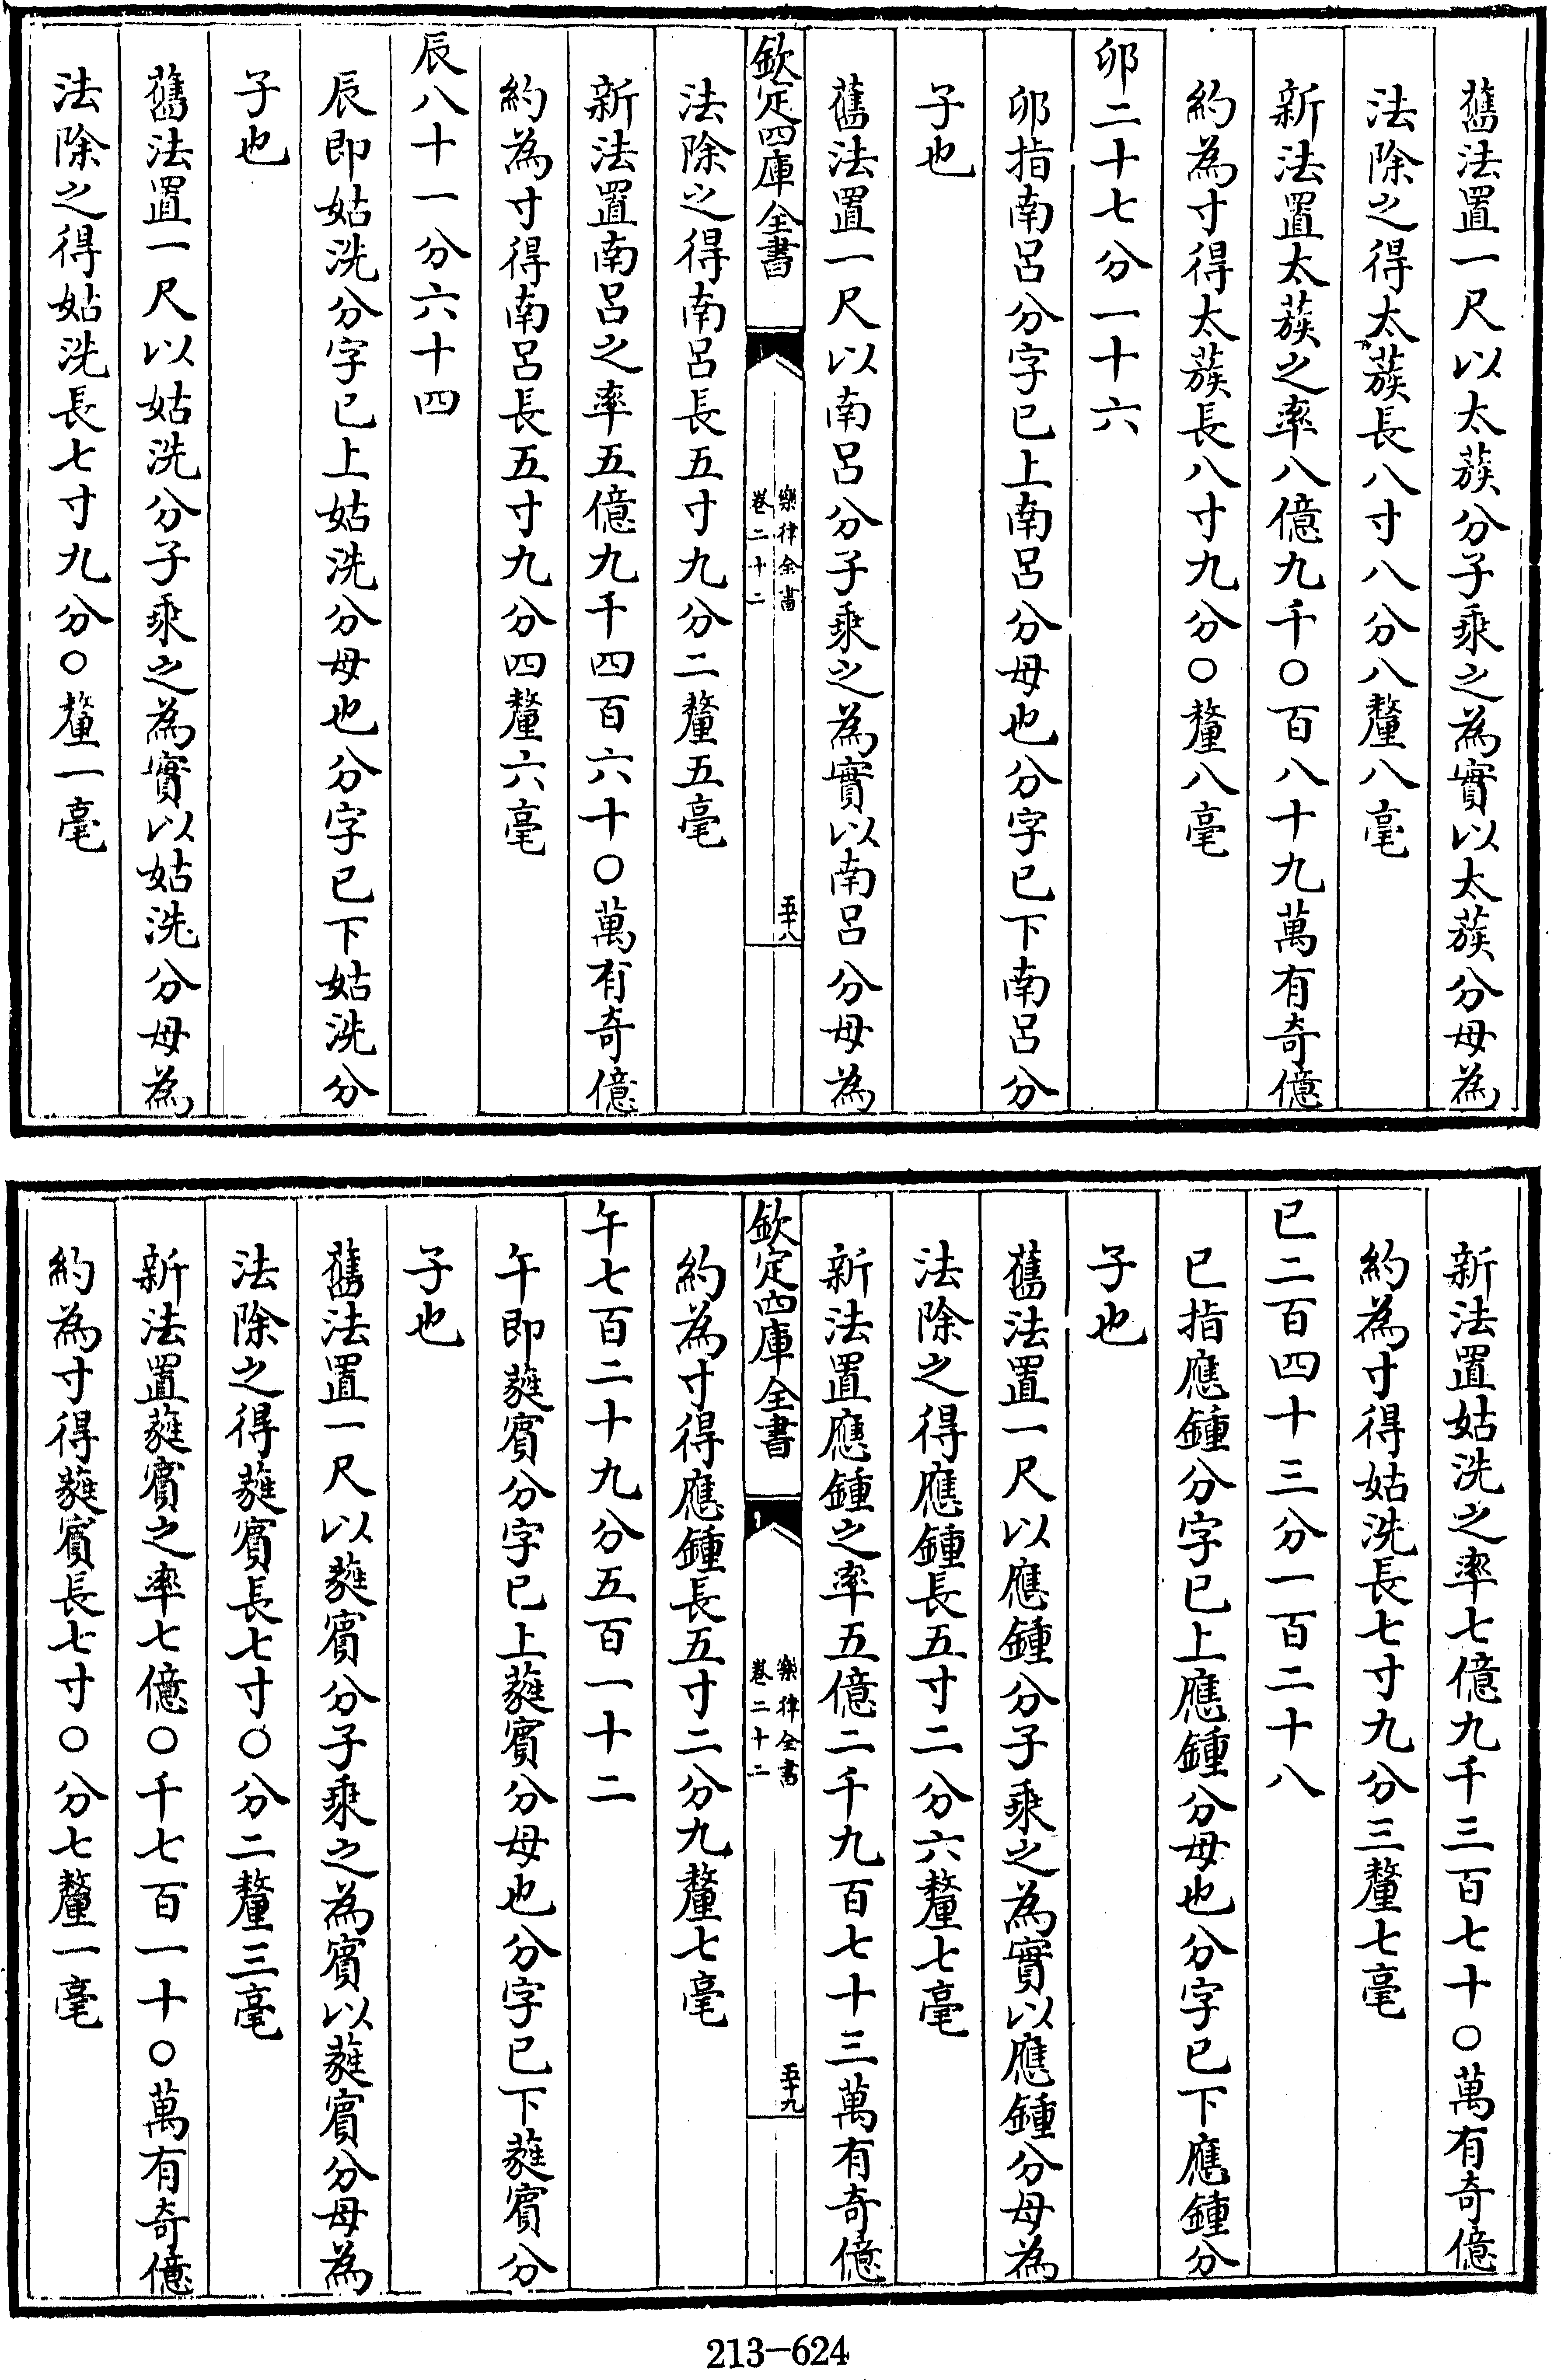 舊法置一尺以太蔟分子乘之為實以太蔟分母為
法除之得太蔟長八寸八分八釐八毫
新法置太蔟之率八億九千〇百八十九萬有奇億
約為寸得太蔟長八寸九分〇釐八毫
卯二十七分一十六
卯指南呂分字已上南呂分母也分字已下南呂分
子也
舊法置一尺以南呂分子乘之為實以南呂分母為
欽定四庫全書
樂律全書
卷二十二
五十八
法除之得南呂長五寸九分二釐五毫
新法置南呂之率五億九千四百六十〇萬有奇億
約為寸得南呂長五寸九分四釐六毫
辰八十一分六十四
辰即姑洗分字已上姑洗分母也分字已下姑洗分
子也
舊法置一尺以姑洗分子乘之為實以姑洗分母為
法除之得姑洗長七寸九分〇釐一毫
新法置姑洗之率七億九千三百七十〇萬有奇億
約為寸得姑洗長七寸九分三釐七毫
巳二百四十三分一百二十八
巳指應鍾分字已上應鍾分母也分字已下應鍾分
子也
舊法置一尺以應鍾分子乘之為實以應鍾分母為
法除之得應鍾長五寸二分六釐七毫
新法置應鍾之率五億二千九百七十三萬有奇億
欽定四庫全書
樂律全書
卷二十二
五十九
約為寸得應鍾長五寸二分九釐七毫
午七百二十九分五百一十二
午即蕤賓分字已上蕤賓分母也分字已下蕤賓分
子也
舊法置一尺以蕤賓分子乘之為賓以蕤賓分母為
法除之得蕤賓長七寸〇分二釐三毫
新法置蕤賓之率七億〇千七百一十〇萬有奇億
約為寸得蕤賓長七寸〇分七釐一毫
213-624